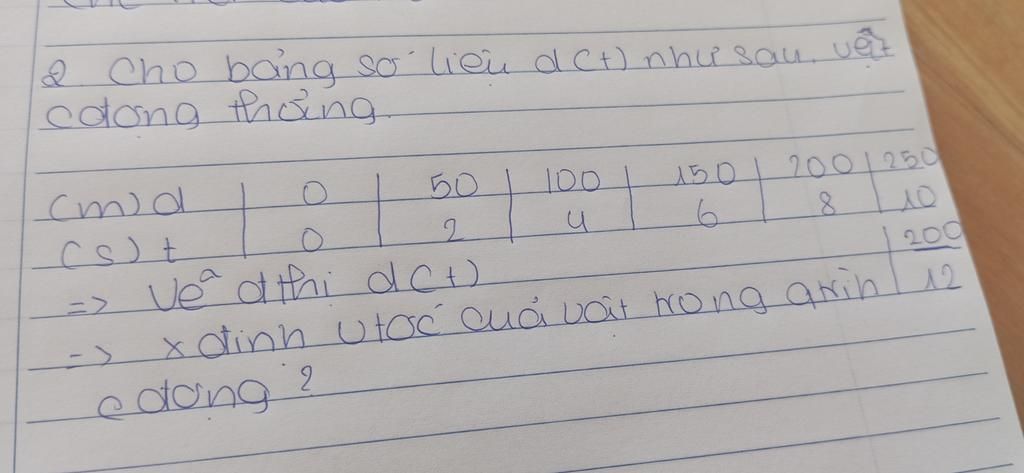 2 Cho bảng số liệu d(t) như sau. vật
cđộng thẳng.
(m) d | 0 | 50 | 100 | 150 | 200 | 250
(s) t | 0 | 2 | 4 | 6 | 8 | 10
| 200
=> Vẽ đthị d(t)
12
=> x định vtốc của vật trong qtrình
cđộng?